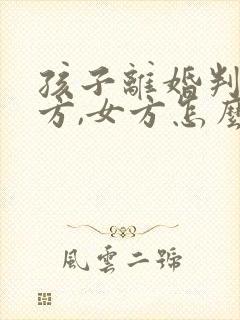 孩子離婚判
方,女方怎麼
風雲二號